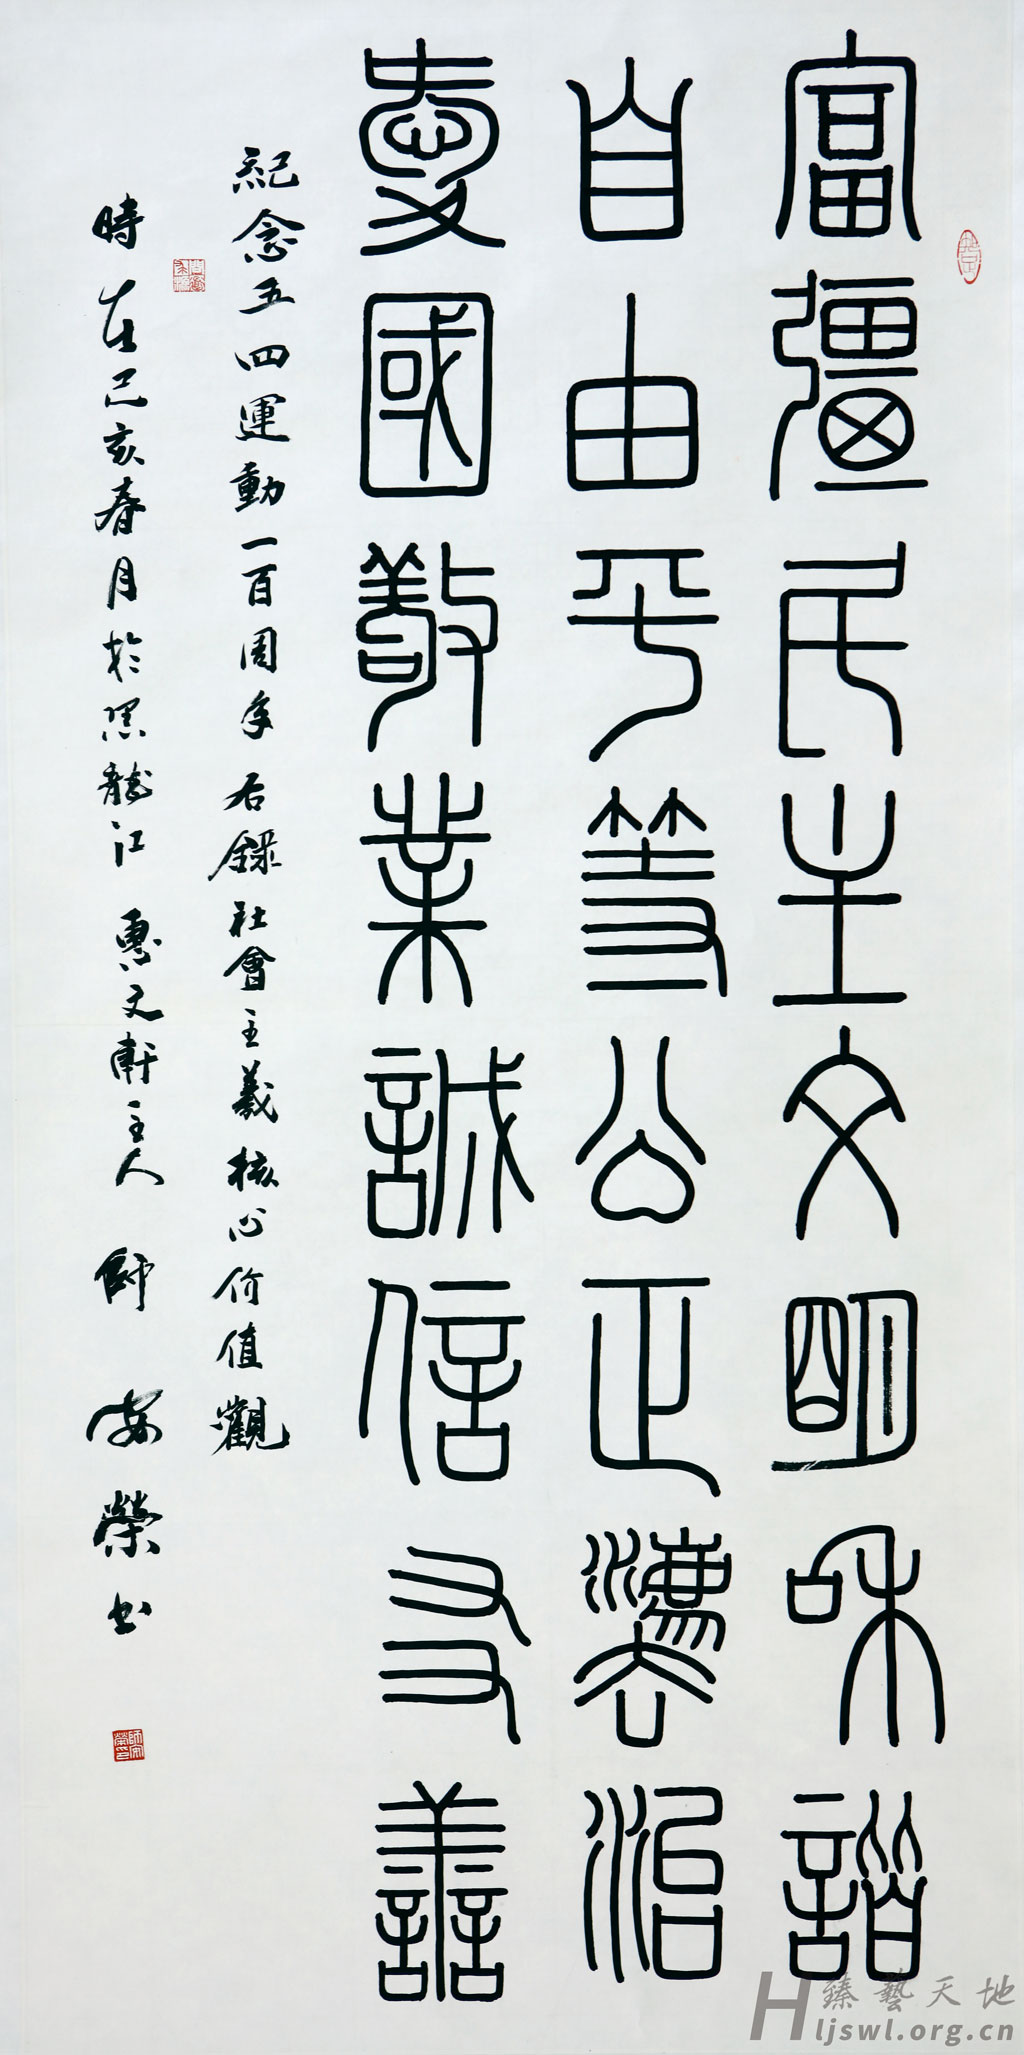 富彊民主文明和諧
自由平等公正灋治
愛國敬業誠信友善
紀念五四運動一百周年右錄社會主義核心价值觀
時在己亥春月於黑龍江惠文軒主人師安榮书
師安榮印
臻藝天地
Hljswl.org.cn